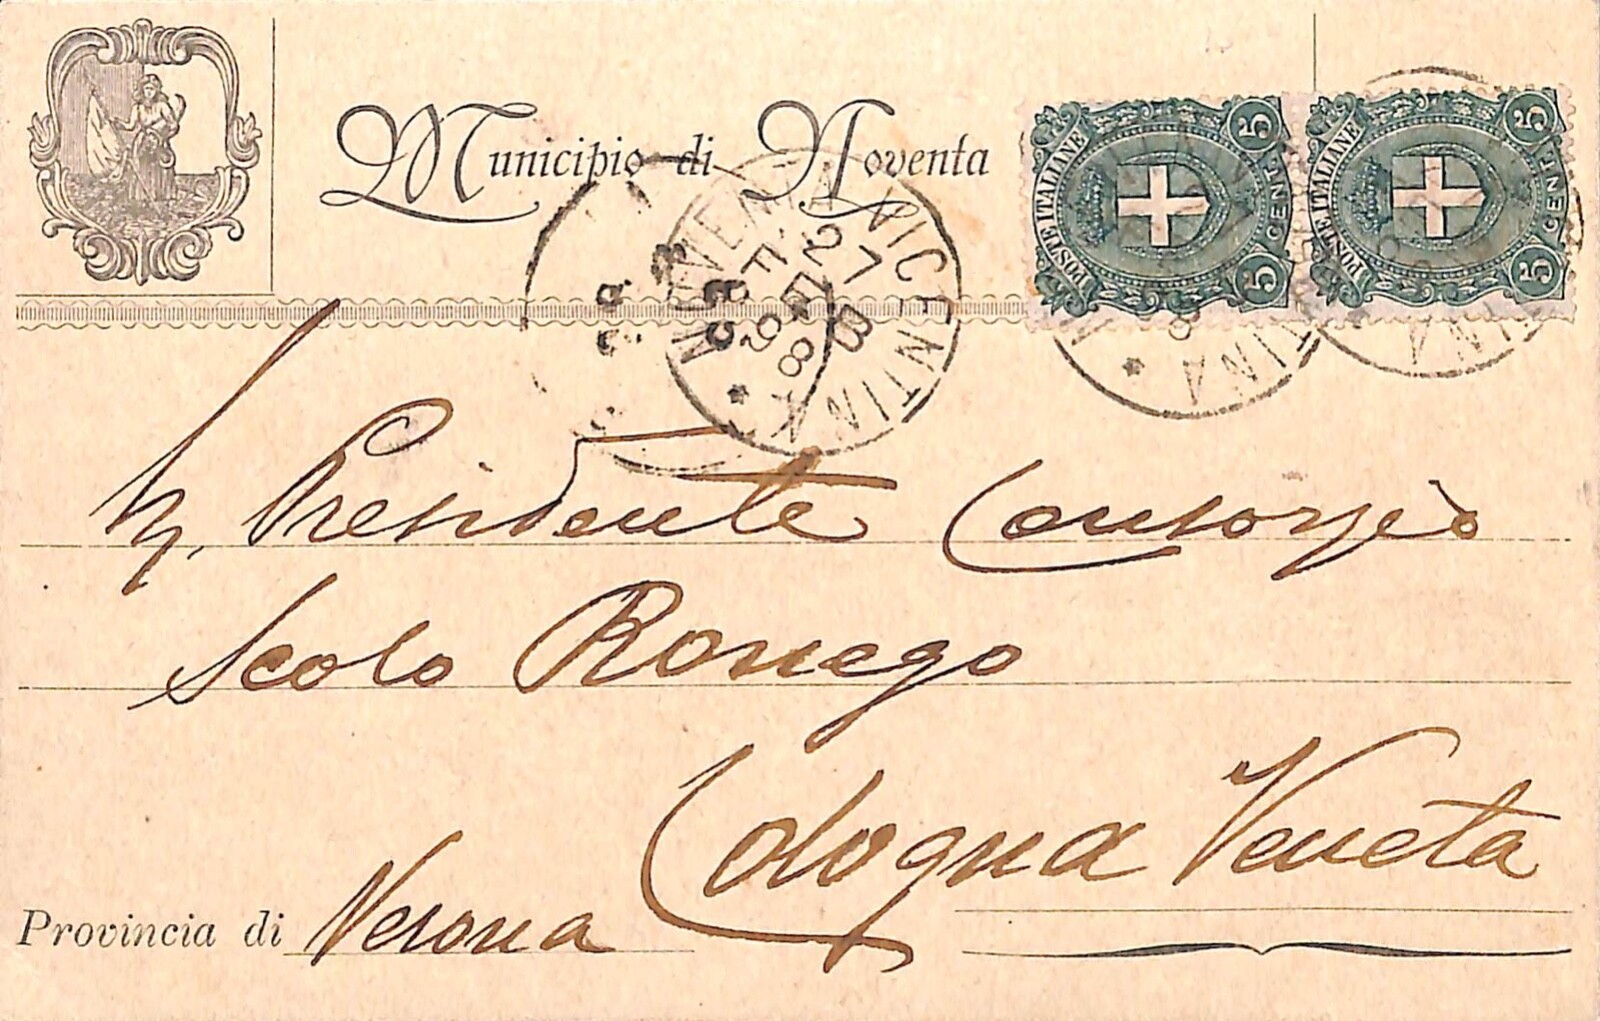 Municipio di Noventa
POSTE ITALIANE
CENT.
5
5
POSTE ITALIANE
CENT.
5
5
NOVENTA VICENTINA
27
FEB
98
Presidente Consorzio
Scolo Ronego
Cologna Veneta
Provincia di Verona